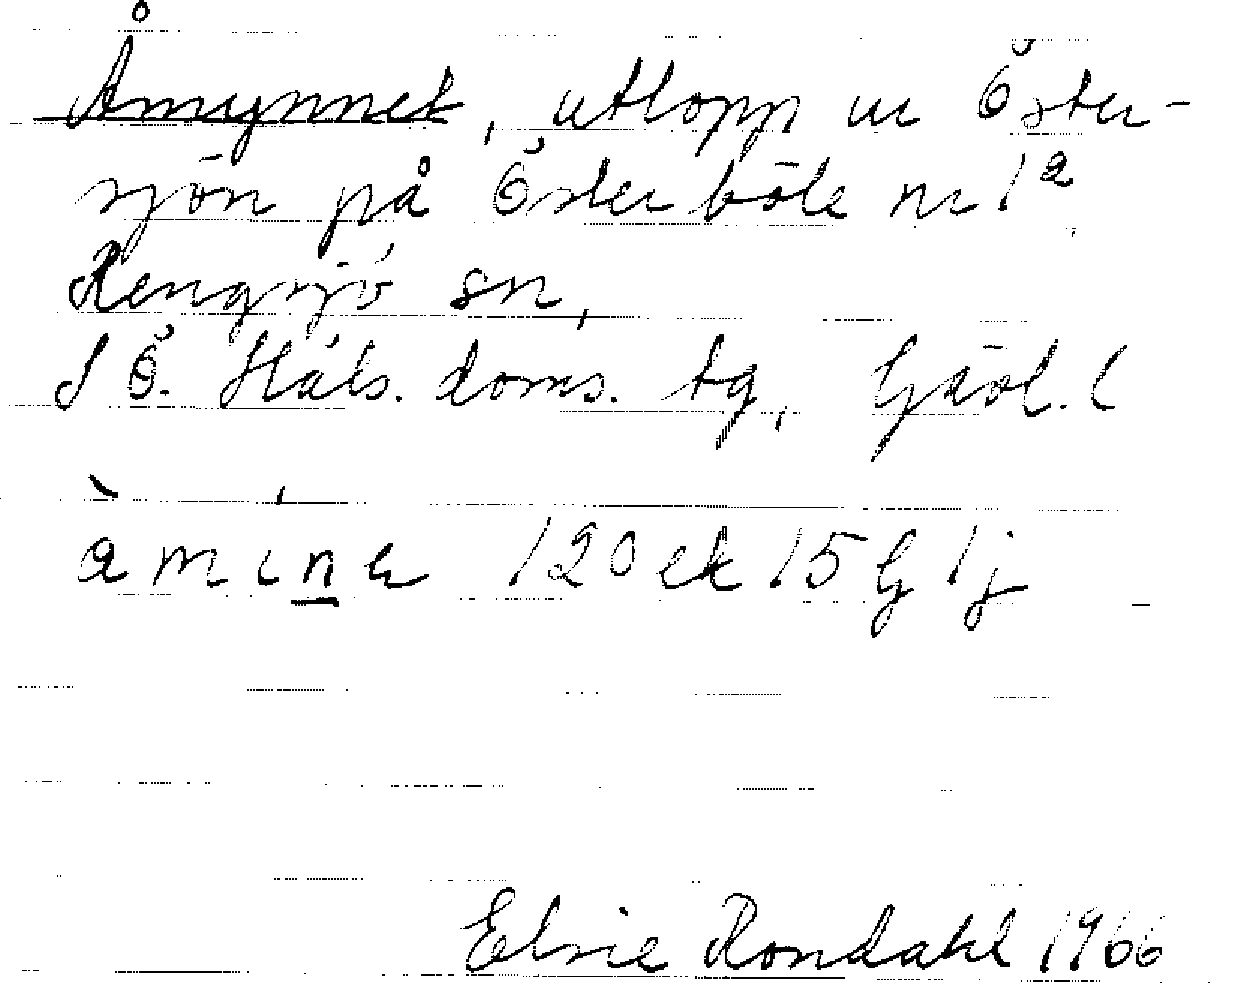 Åmynnet, utlopp ur Öster-
sjön på Österböle nr 1ª
Rengsjö sn,
S Ö. Häls. doms. tg, Gävl. l
åminɛ 120 ek 15 G 1 j
Elsie Rondahl 1966